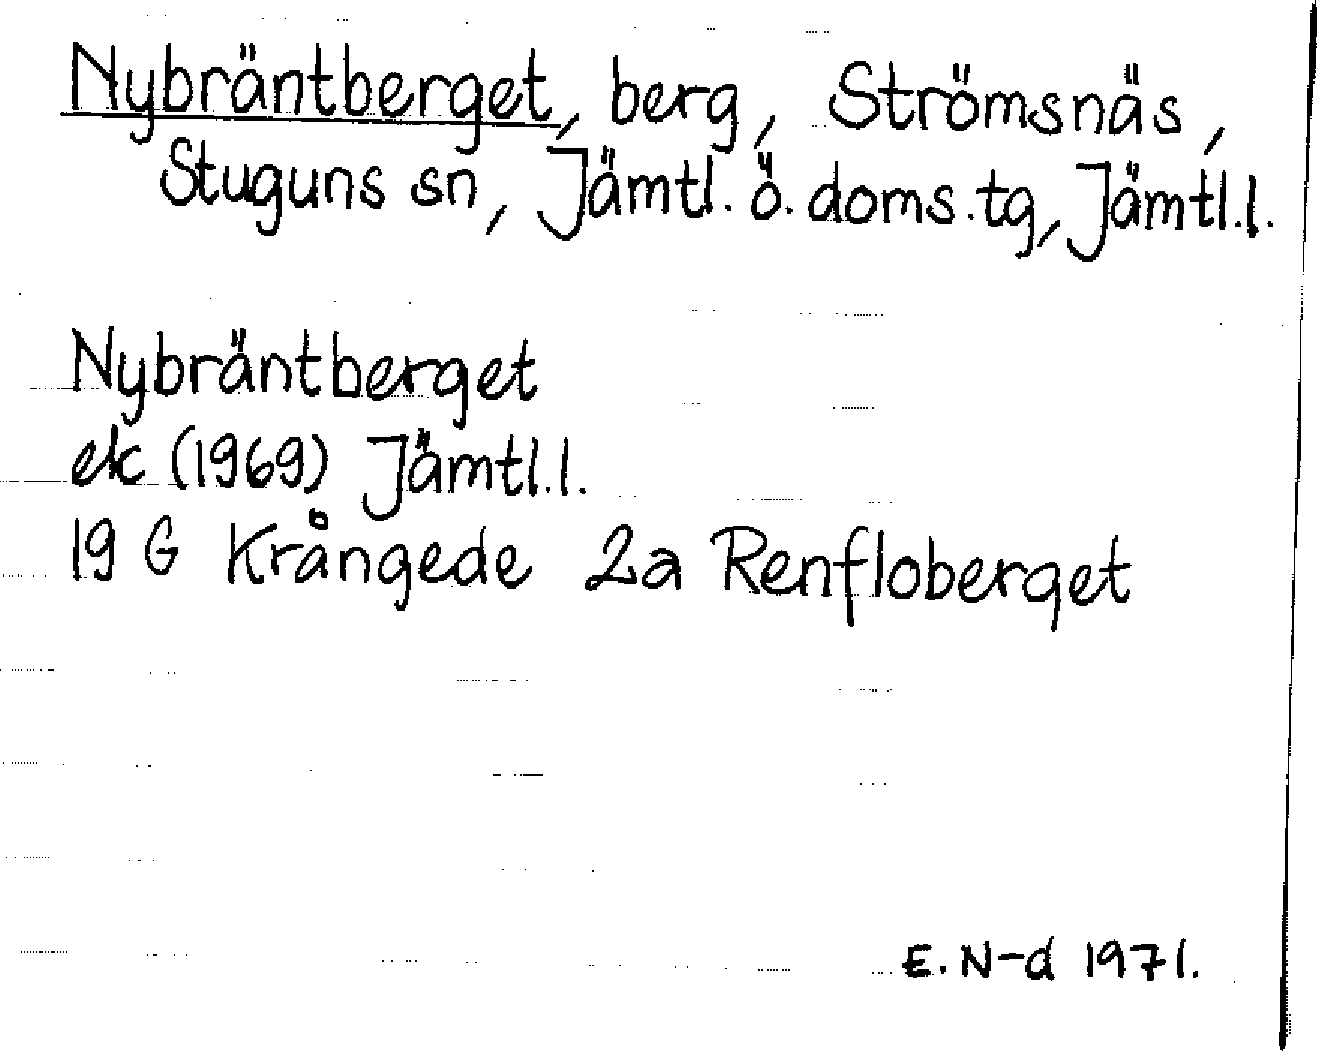 Nybräntberget, berg, Strömsnäs,
Stuguns sn, Jämtl. ö. doms.tg, Jämtl.l.
Nybräntberget
ek (1969) Jämtl.l.
19 G Krångede 2a Renfloberget
E. N-d 1971.